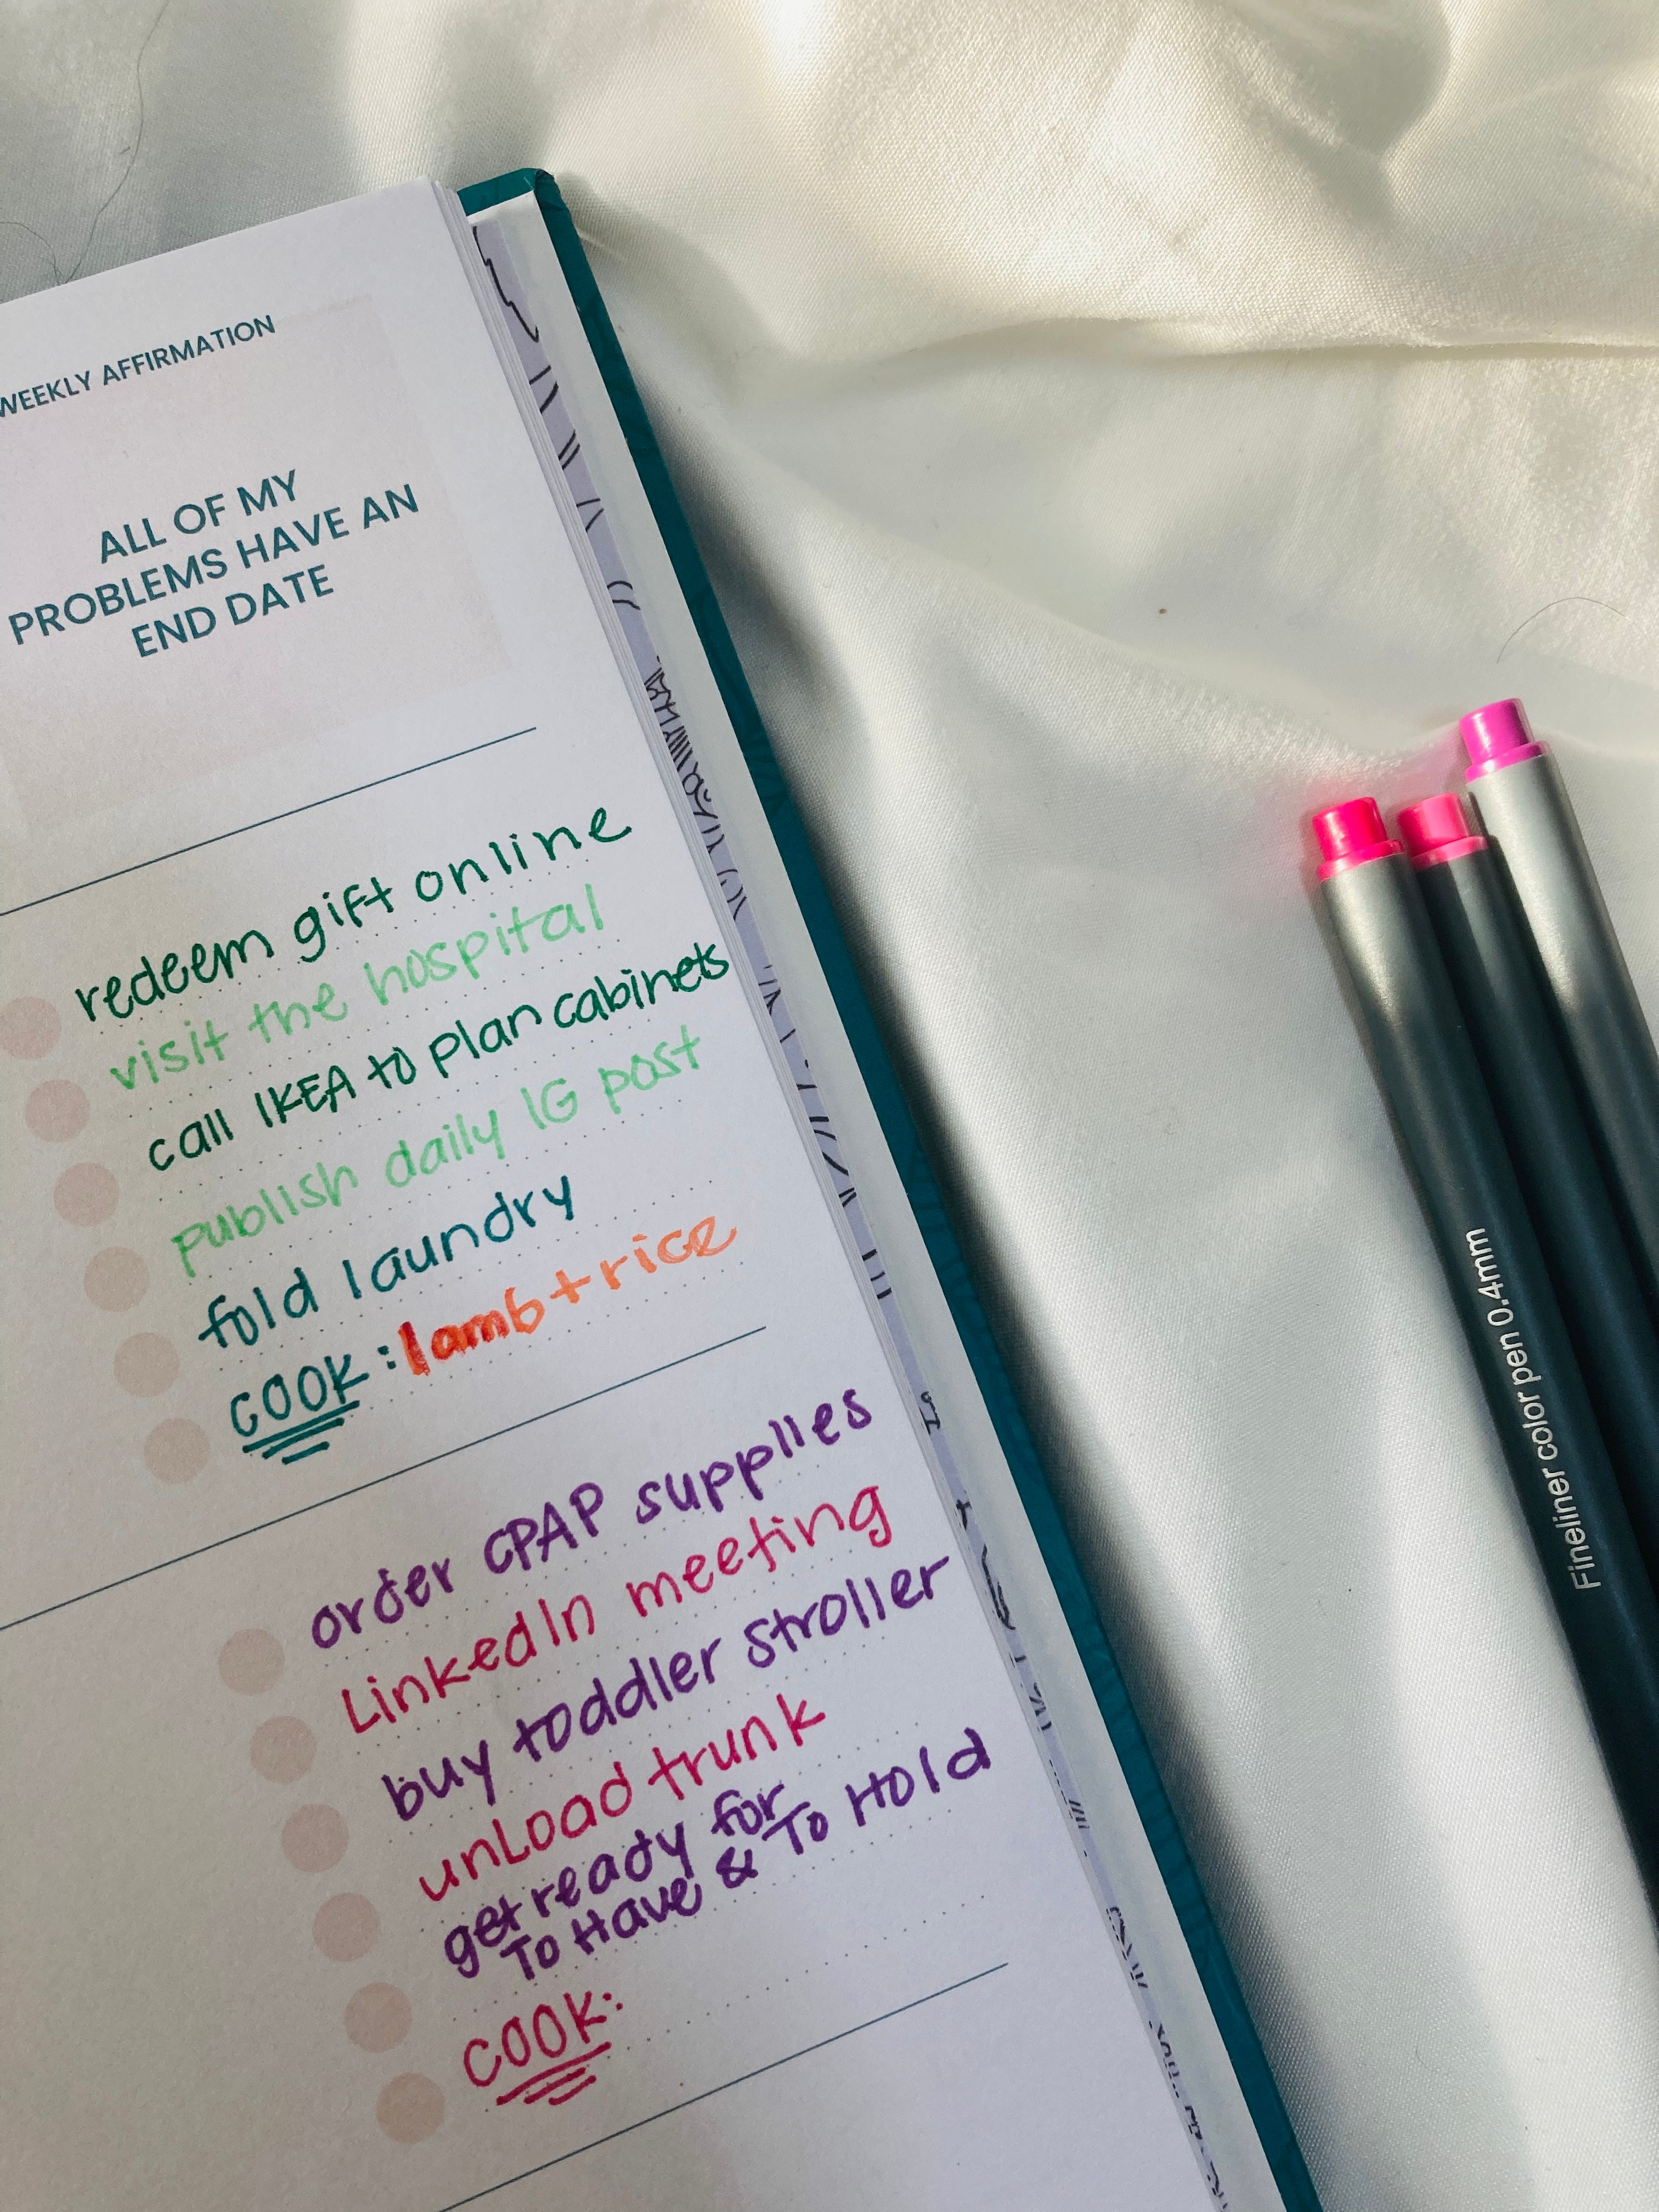 WEEKLY AFFIRMATION
ALL OF MY
PROBLEMS HAVE AN
END DATE
redeem gift online
visit the hospital
call IKEA to plan cabinets
publish daily IG post
fold laundry
COOK: lamb + rice
order CPAP supplies
LinkedIn meeting
buy toddler stroller
unload trunk
get ready for
To Have & To Hold
COOK:
Fineliner color pen 0.4mm